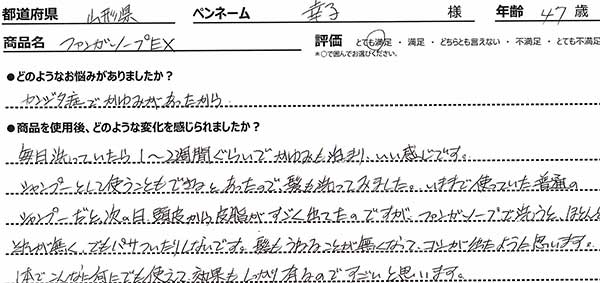 都道府県 山形県 ペンネーム 幸子 様 年齢 47 歳
商品名 ファンガソープEX 評価 とても満足 ・ 満足 ・ どちらとも言えない ・ 不満足 ・ とても不満足
*○で囲んでお選びください。
●どのようなお悩みがありましたか？
カンジタ症でかゆみがあったから
●商品を使用後、どのような変化を感じられましたか？
毎日洗っていたら1〜2週間ぐらいでかゆみも治まり、いい感じです。
シャンプーとして使うこともできると、あったので、髪も洗ってみました。いままで使っていた普通の
シャンプーだと、次の日、頭皮から皮脂がすごく出てたのですが、ファンガソープで洗うと、ほとんど
それが無く、でもパサついたりしないです。髪もうねることが無くなって、コシが出たように思います。
1本でこんなに何にでも使えて、効果もしっかり有るのですごいと思います。